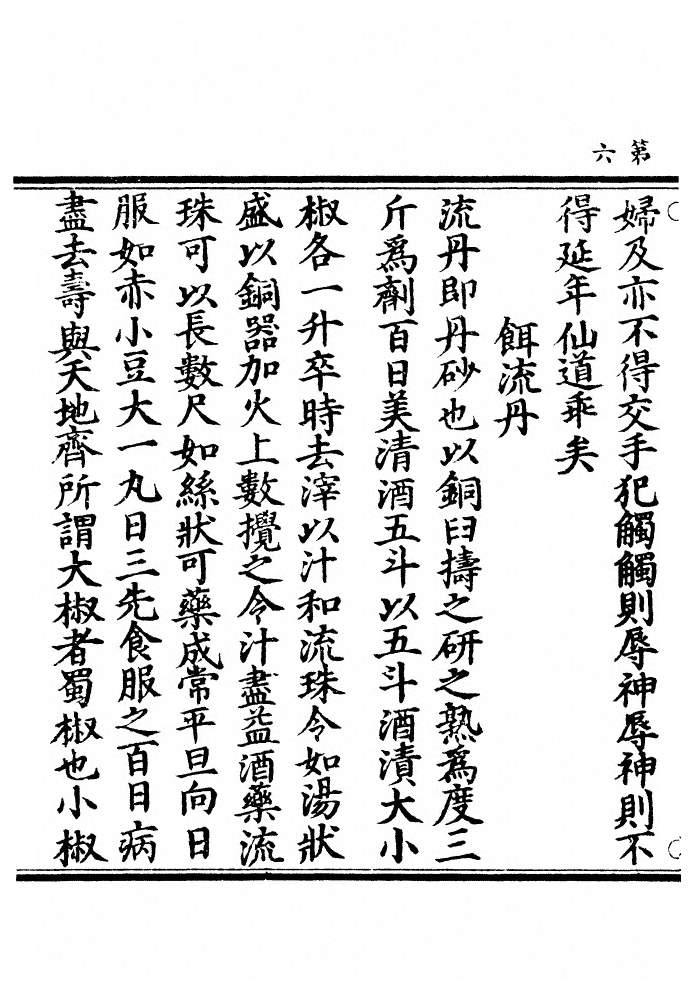 第六
婦及亦不得交手犯觸觸則辱神辱神則不
得延年仙道乖矣
餌流丹
流丹即丹砂也以銅臼擣之研之熟爲度三
斤爲劑百日美清酒五斗以五斗酒漬大小
椒各一升卒時去滓以汁和流珠令如湯狀
盛以銅器加火上數攪之令汁盡益酒藥流
珠可以長數尺如絲狀可藥成常平旦向日
服如赤小豆大一丸日三先食服之百日病
盡去壽與天地齊所謂大椒者蜀椒也小椒